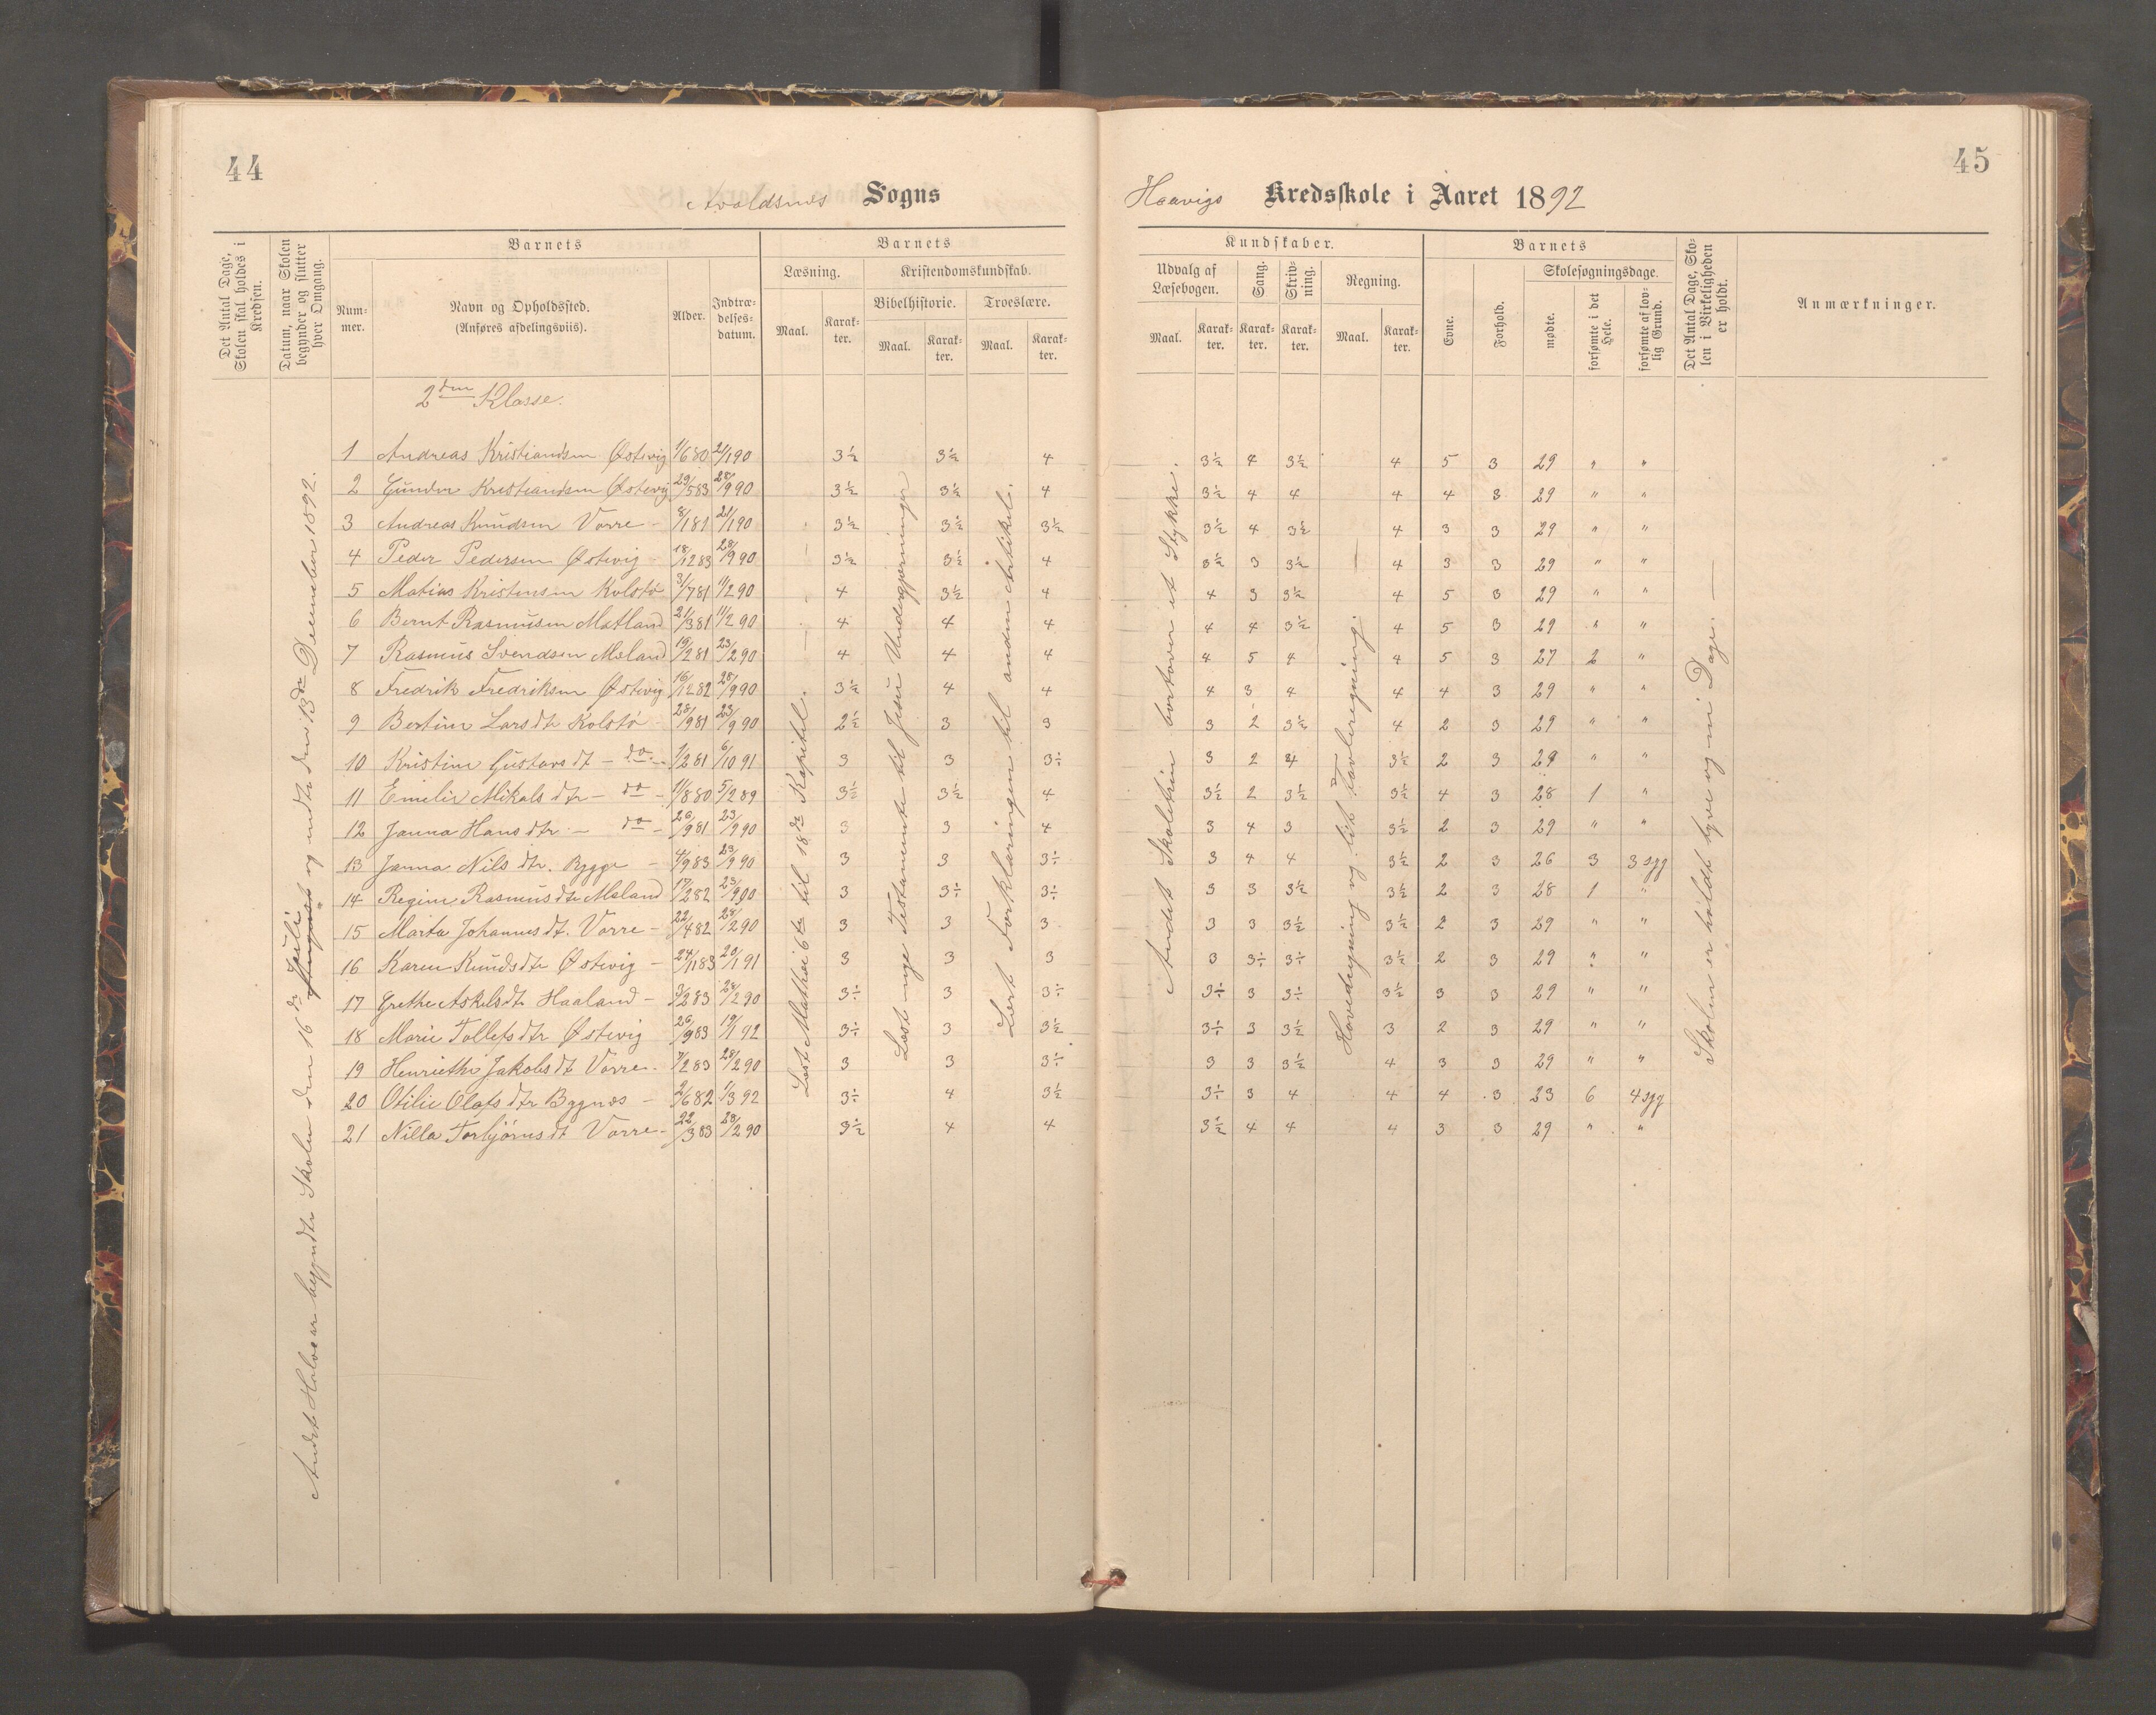 44
Avaldsnes Sogns
Det Antal Dage, Skolen skal holdes i Kredsen.
Datum, naar Skolen begynder og slutter hver Omgang.
Barnets
Num-mer.
Navn og Opholdssted.
(Anføres afdelingsviis).
Alder.
Indtræ-delses-datum.
Barnets
Læsning.
Kristendomskundskab.
Bibelhistorie.
Troeslære.
Maal.
Karak-ter.
Maal.
Karak-ter.
Maal.
Karak-ter.
2den Klasse.
1 Andreas Kristiansen Østevig 1/6 80 21/1 90 3½ 3½ 4
2 Gunder Kristiansen Østevig 29/5 83 28/9 90 3½ 3½ 4
3 Andreas Knudsen Vorre - 8/1 81 21/1 90 3½ 3½ 3½
4 Peder Pedersen Østevig - 18/12 83 28/9 90 3½ 3½ 4
5 Matias Kristensen Kolstø 3/7 81 11/2 90 4 3½ 4
6 Bernt Rasmusen Matland 21/3 81 11/2 90 4 4 4
7 Rasmus Svendsen Meland 19/2 81 23/2 90 4 4 4
8 Fredrik Fredriksen Østevig 16/12 82 28/9 90 3½ 4 4
9 Bertine Larsdtr Kolstø - 28/9 81 23/9 90 2½ 3 3
10 Kristine Gustavsdt - do - 1/2 81 6/10 91 3 3 3÷
11 Emelie Mikalsdtr - do - 11/8 80 5/2 89 3½ 3½ 4
12 Janna Hansdtr - do - 26/9 81 23/9 90 3 3 4
13 Janna Nilsdtr. Bygge - 4/9 83 23/9 90 3 3 3÷
14 Regine Rasmusdtr Meland 17/2 82 23/9 90 3 3÷ 3÷
15 Marta Johannesdt. Vorre - 22/4 82 28/2 90 3 3 3
16 Karen Knudsdtr Østevig - 24/11 83 20/1 91 3 3 3
17 Grethe Askelsdtr Haaland - 3/2 83 28/2 90 3÷ 3 3÷
18 Marie Tollefsdtr Østevig 26/9 83 19/1 92 3÷ 3 3½
19 Henriethe Jakobsdt Vorre. 7/2 83 28/2 90 3 3 3÷
20 Otilie Olafsdtr Bygnes - 2/6 82 1/3 92 3÷ 4 3½
21 Nilla Torbjørnsdt Vorre - 22/3 83 28/2 90 3½ 4 4
Andet Halvaar begyndte Skolen den 16de Juli og endte den 13de December 1892.
Læst Matthæi 6te til 18de Kapitel.
Læst nye Testamente til Jesu Undergjerninger
Lært Forklaringen til anden Artikel.
45
Haavigs Kredsskole i Aaret 1892
Kundskaber.
Udvalg af Læsebogen.
Sang.
Skriv-ning.
Regning.
Maal.
Karak-ter.
Karak-ter.
Karak-ter.
Maal.
Karak-ter.
Barnets
Evne.
Forhold.
Skolesøgningsdage.
mødte.
forsømte i det Hele.
forsømte af lov-lig Grund.
Det Antal Dage, Sko-len i Virkeligheden er holdt.
Anmærkninger.
3½ 4 3½ 4 5 3 29 " "
3½ 4 4 4 4 3 29 " "
3½ 4 3½ 4 3 3 29 " "
3½ 3 3½ 4 3 3 29 " "
4 3 3½ 4 5 3 29 " "
4 4 3½ 4 5 3 29 " "
4 5 4 4 5 3 27 2 "
4 3 4 4 4 3 29 " "
3 2 3½ 4 2 3 29 " "
3 2 4 3½ 2 3 29 " "
3½ 2 3½ 3½ 4 3 28 1 "
3 4 3 3½ 2 3 29 " "
3 4 4 3½ 2 3 26 3 3 syg
3 3 3½ 3½ 2 3 28 1 "
3 3 3½ 3½ 2 3 29 " "
3 3÷ 3÷ 3½ 2 3 29 " "
3÷ 3 3÷ 3½ 3 3 29 " "
3÷ 3 3½ 3 2 3 29 " "
3 3 3½ 4 3 3 29 " "
3÷ 3 4 4 4 3 23 6 4 syg
3½ 4 4 4 3 3 29 " "
Andet Skoletrin bortover et Stykke.
Hovedregning og lidt Tavleregning.
Skolen er holdt tyve og ni Dage.